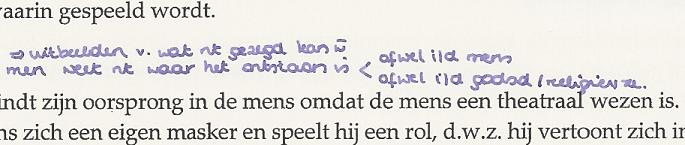 vaarin gespeeld wordt.
⇒ uitbeelden v. wat nt gezegd kan w̄
men weet nt waar het ontstaan is < ofwel i/d mens
ofwel i/d godsd / religieuze.
indt zijn oorsprong in de mens omdat de mens een theatraal wezen is.
ns zich een eigen masker en speelt hij een rol, d.w.z. hij vertoont zich in